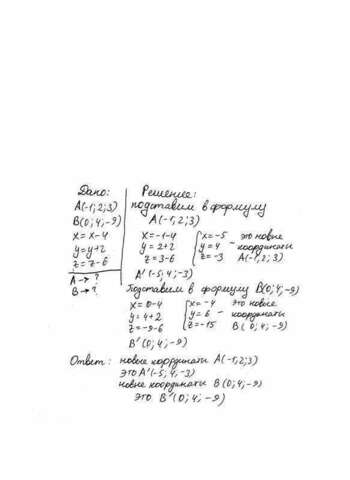 Дано:
A(-1;2;3)
B(0;4;-9)
x=x-4
y=y+2
z=z-6
A→?
B→?
Решение:
подставим в формулу
A(-1;2;3)
x=-1-4
y=2+2
z=3-6
x=-5
y=4
z=-3
- это новые
координаты
A(-1;2;3)
A'(-5;4;-3)
Подставим в формулу B(0;4;-9)
x=0-4
y=4+2
z=-9-6
x=-4
y=6
z=-15
- это новые
координаты
B(0;4;-9)
B'(0;4;-9)
Ответ: новые координаты A(-1;2;3)
это A'(-5;4;-3)
новые координаты B(0;4;-9)
это B'(0;4;-9)